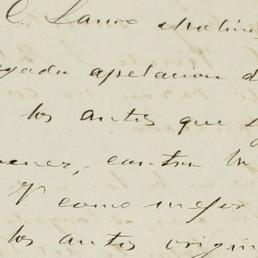 C. Lauro
apelacion d
los autos que s
contra la
y como mejor
los autos origin